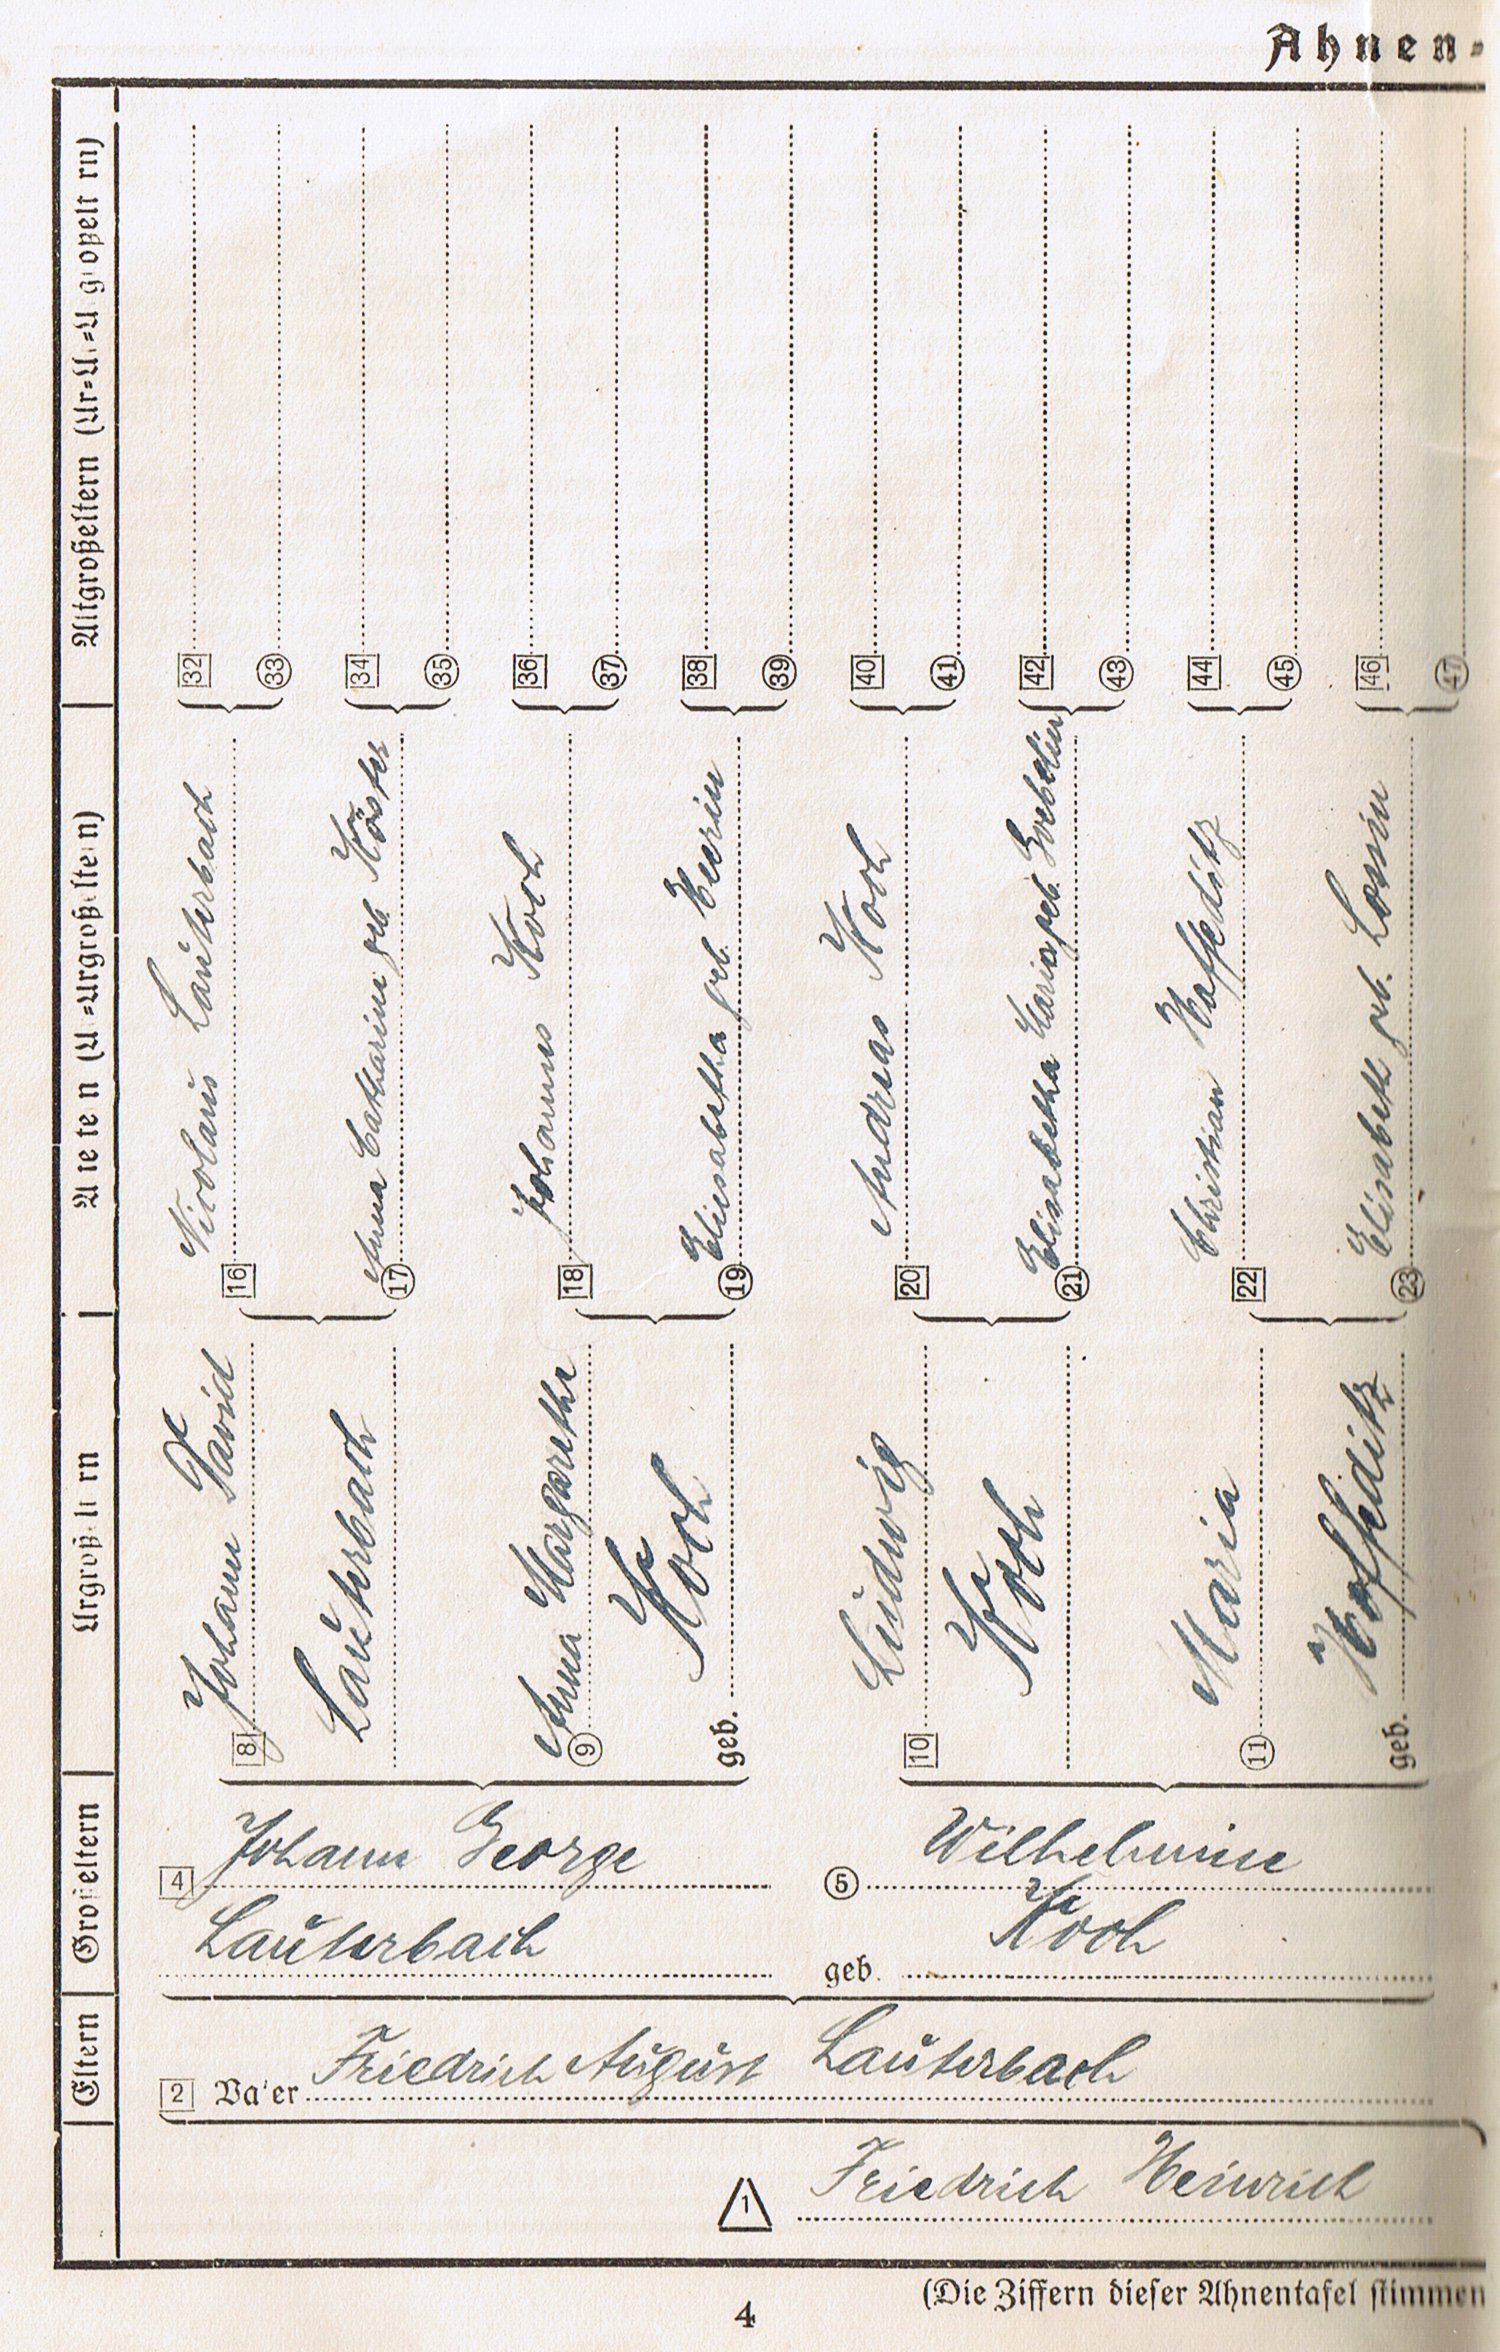 Ahnen-
Altgroßeltern (Ur-U.-U g oßelt rn)
32
33
34
35
36
37
38
39
40
41
42
43
44
45
46
47
A te te n (U -Urgroß lte n)
Nicolaus Lauterbach
16
Anna Catharine geb. Köster
17
Johannes Koch
18
Eliesabetha geb.
19
Andreas Koch
20
Elisabetha Maria geb.
21
Christian Hoffeditz
22
Elisabeth geb. Lossin
23
Urgroß lt rn
8 Johann David
Lauterbach
9 Anna Margaretha
geb. Koch
10 Ludwig
Koch
11 Maria
geb. Hoffeditz
Großeltern
4 Johann George
Lauterbach
5 Wilhelmine
geb. Koch
Eltern
2 Vater Friedrich August Lauterbach
1 Friedrich Heinrich
(Die Ziffern dieser Ahnentafel stimmen
4